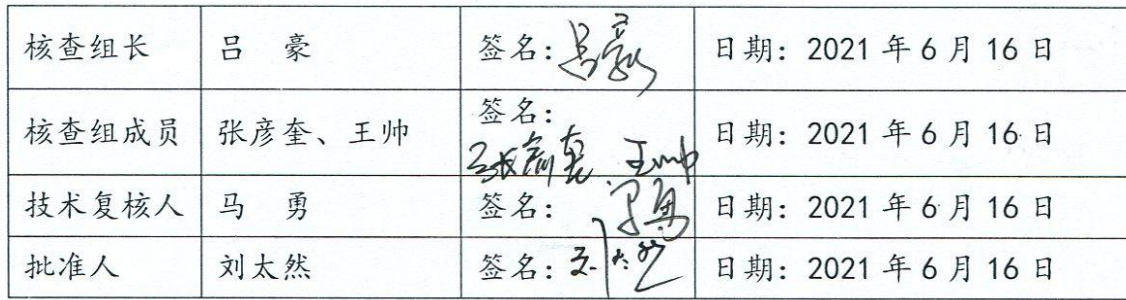 核查组长 吕 豪 签名：吕豪 日期：2021 年 6 月 16 日
核查组成员 张彦奎、王帅 签名：张彦奎 王帅 日期：2021 年 6 月 16 日
技术复核人 马 勇 签名：马勇 日期：2021 年 6 月 16 日
批准人 刘太然 签名：刘太然 日期：2021 年 6 月 16 日